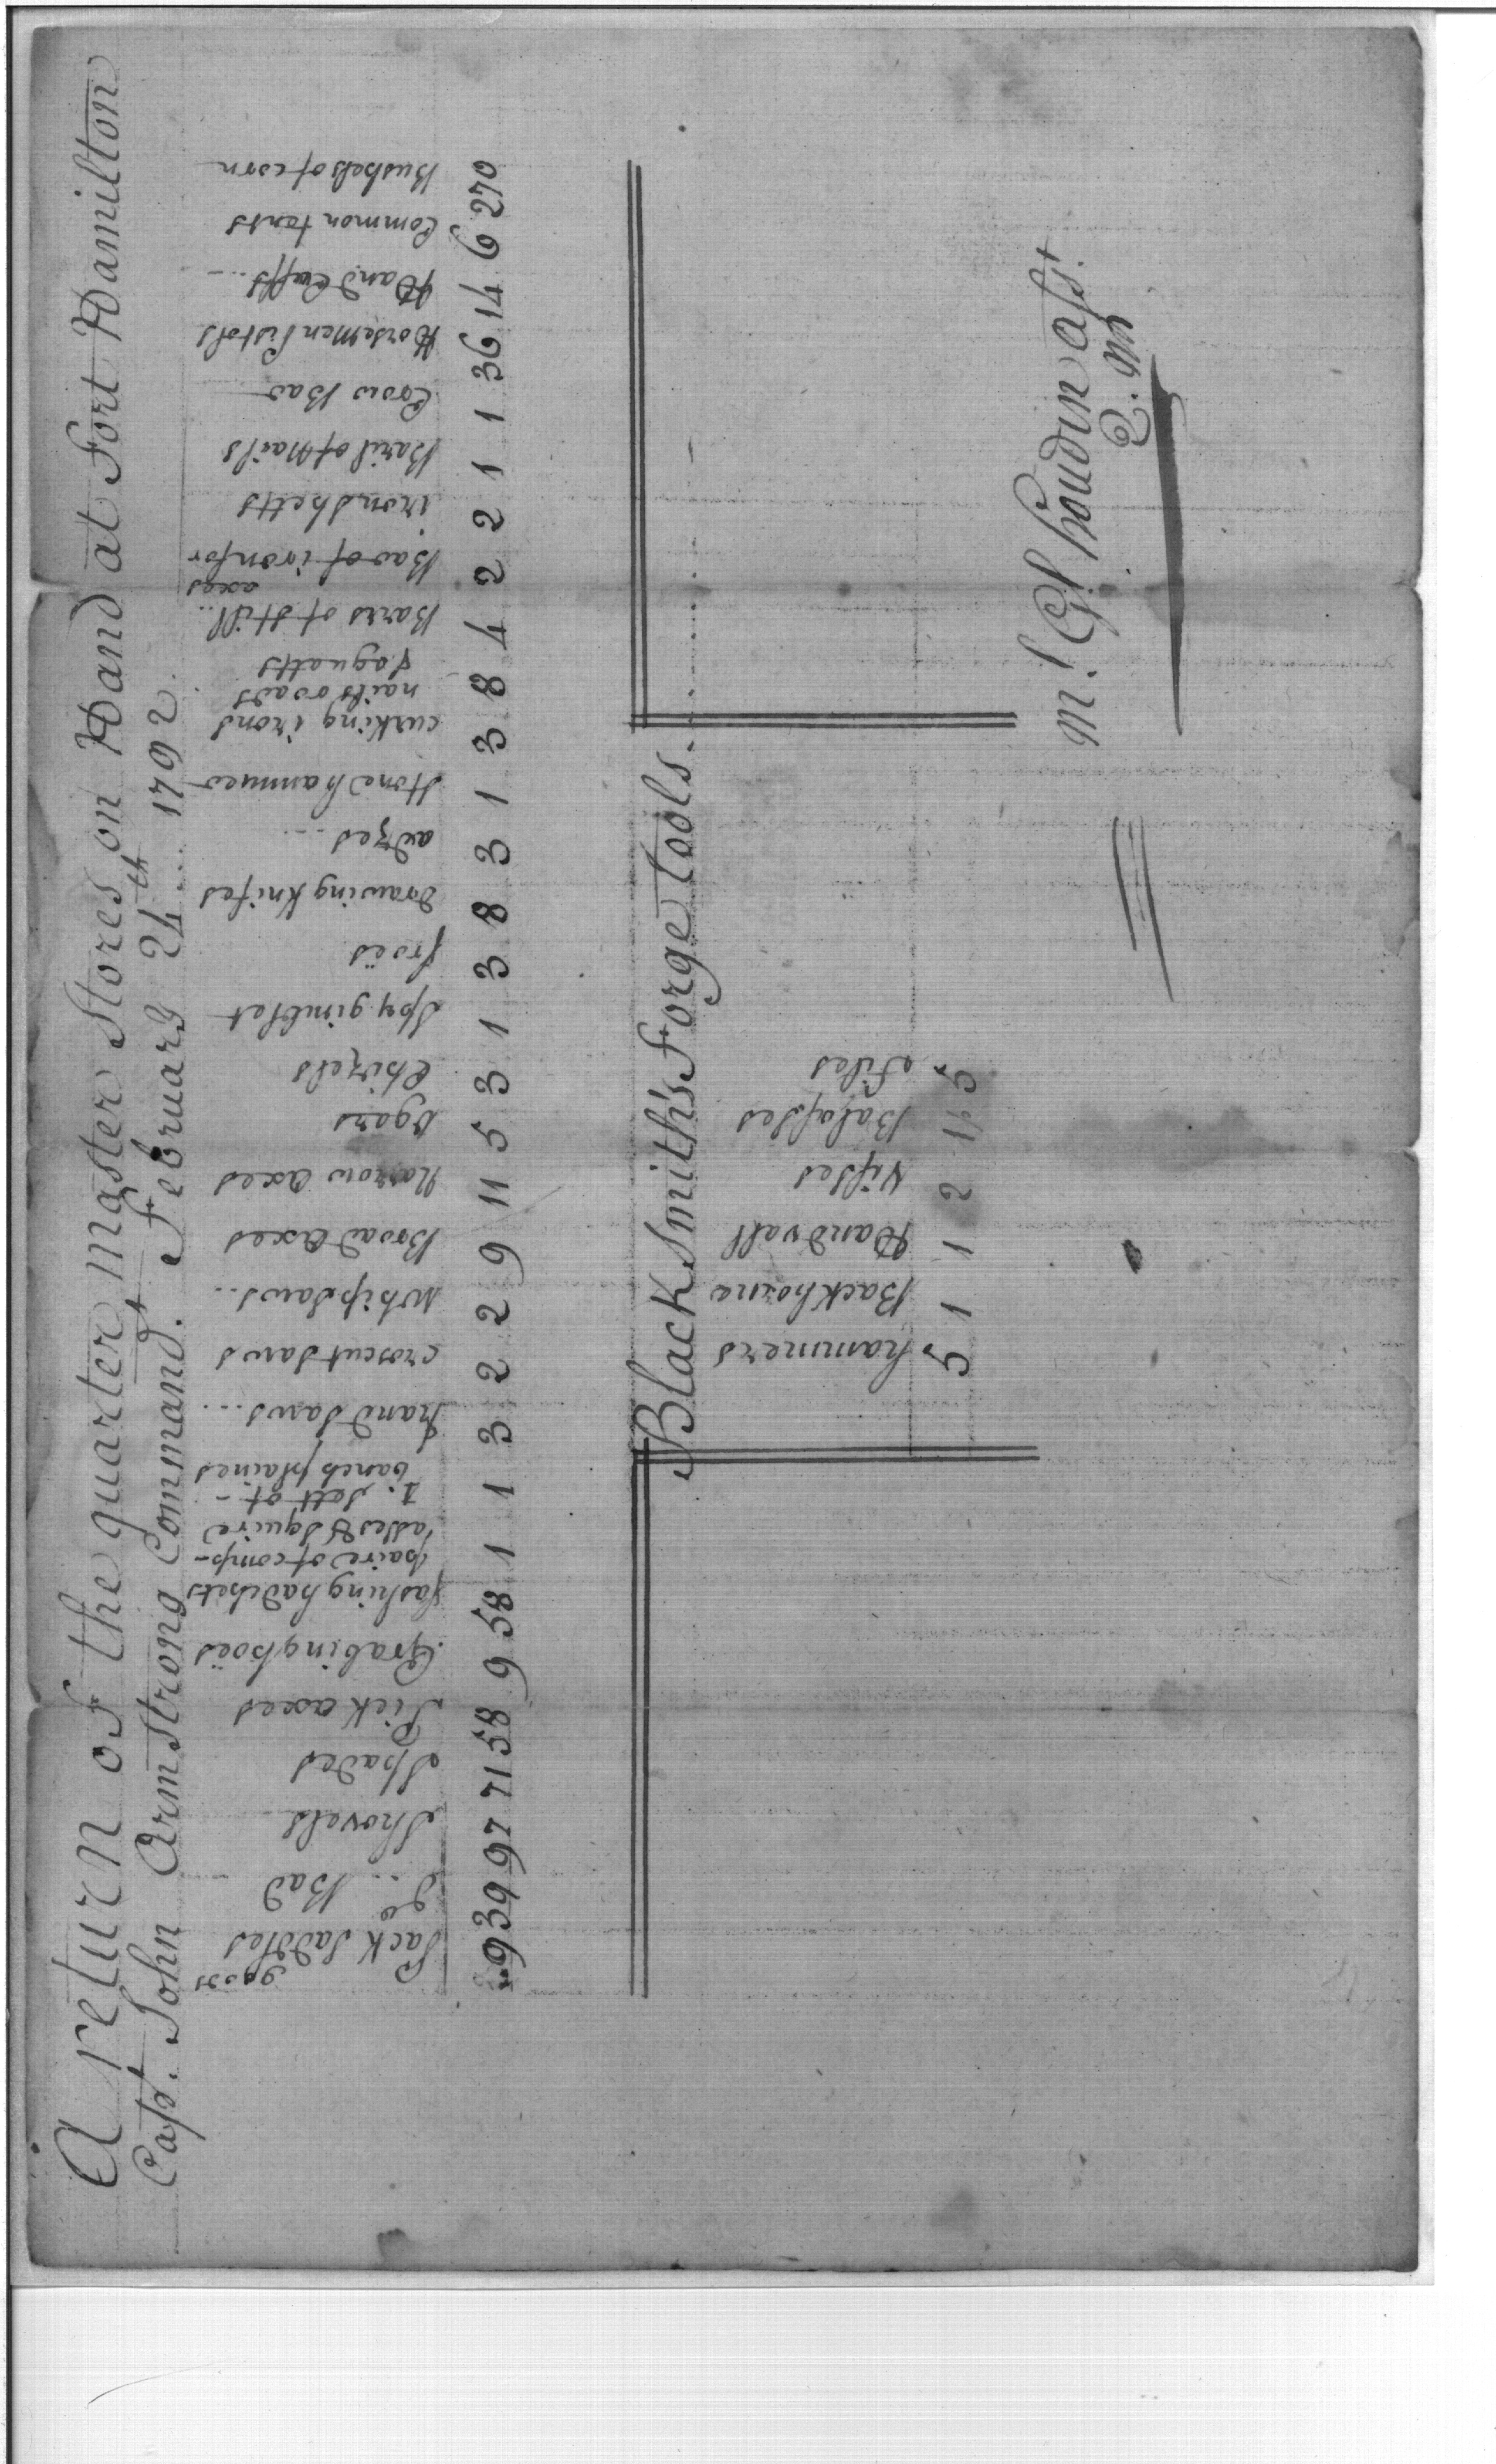 A return of the quarter master Stores on Hand at Fort Hamilton
Capt. John Armstrong Command. February 24th 1792.
good
Pack Saddles
do Bad
Shovels
Spades
Pick axes
Grabing hoes
fashing hadchets
paire of comp-
asses & Squire
1. Sett of
banch plaines
hand Saws...
croscut Saws
Whip Saws..
Broad Axes
Narrow Axes
Ogars
Chizels
Spy gimblet
froës
drawing Knifes
adzes...
Stone hammer
curking irons
nails roads
& aguatts
Bares of Still..
Bar of iron for
axes
iron Shetts
Baril of Nails
Crow Bar
Horsemen Pistols
Hand Cuffs...
Common tents
Bushels of corn
9 39 97 71 58 9 58 1 1 3 2 2 9 11 5 3 1 3 8 3 1 3 8 4 2 2 1 1 36 14 6 270
Black Smith's Forge Tools.
hammers
Backhorne
Hand vall
Vifses
Balofses
Files
5 1 1 2 1 5
M. Gl. houdin afst.
Q. M.